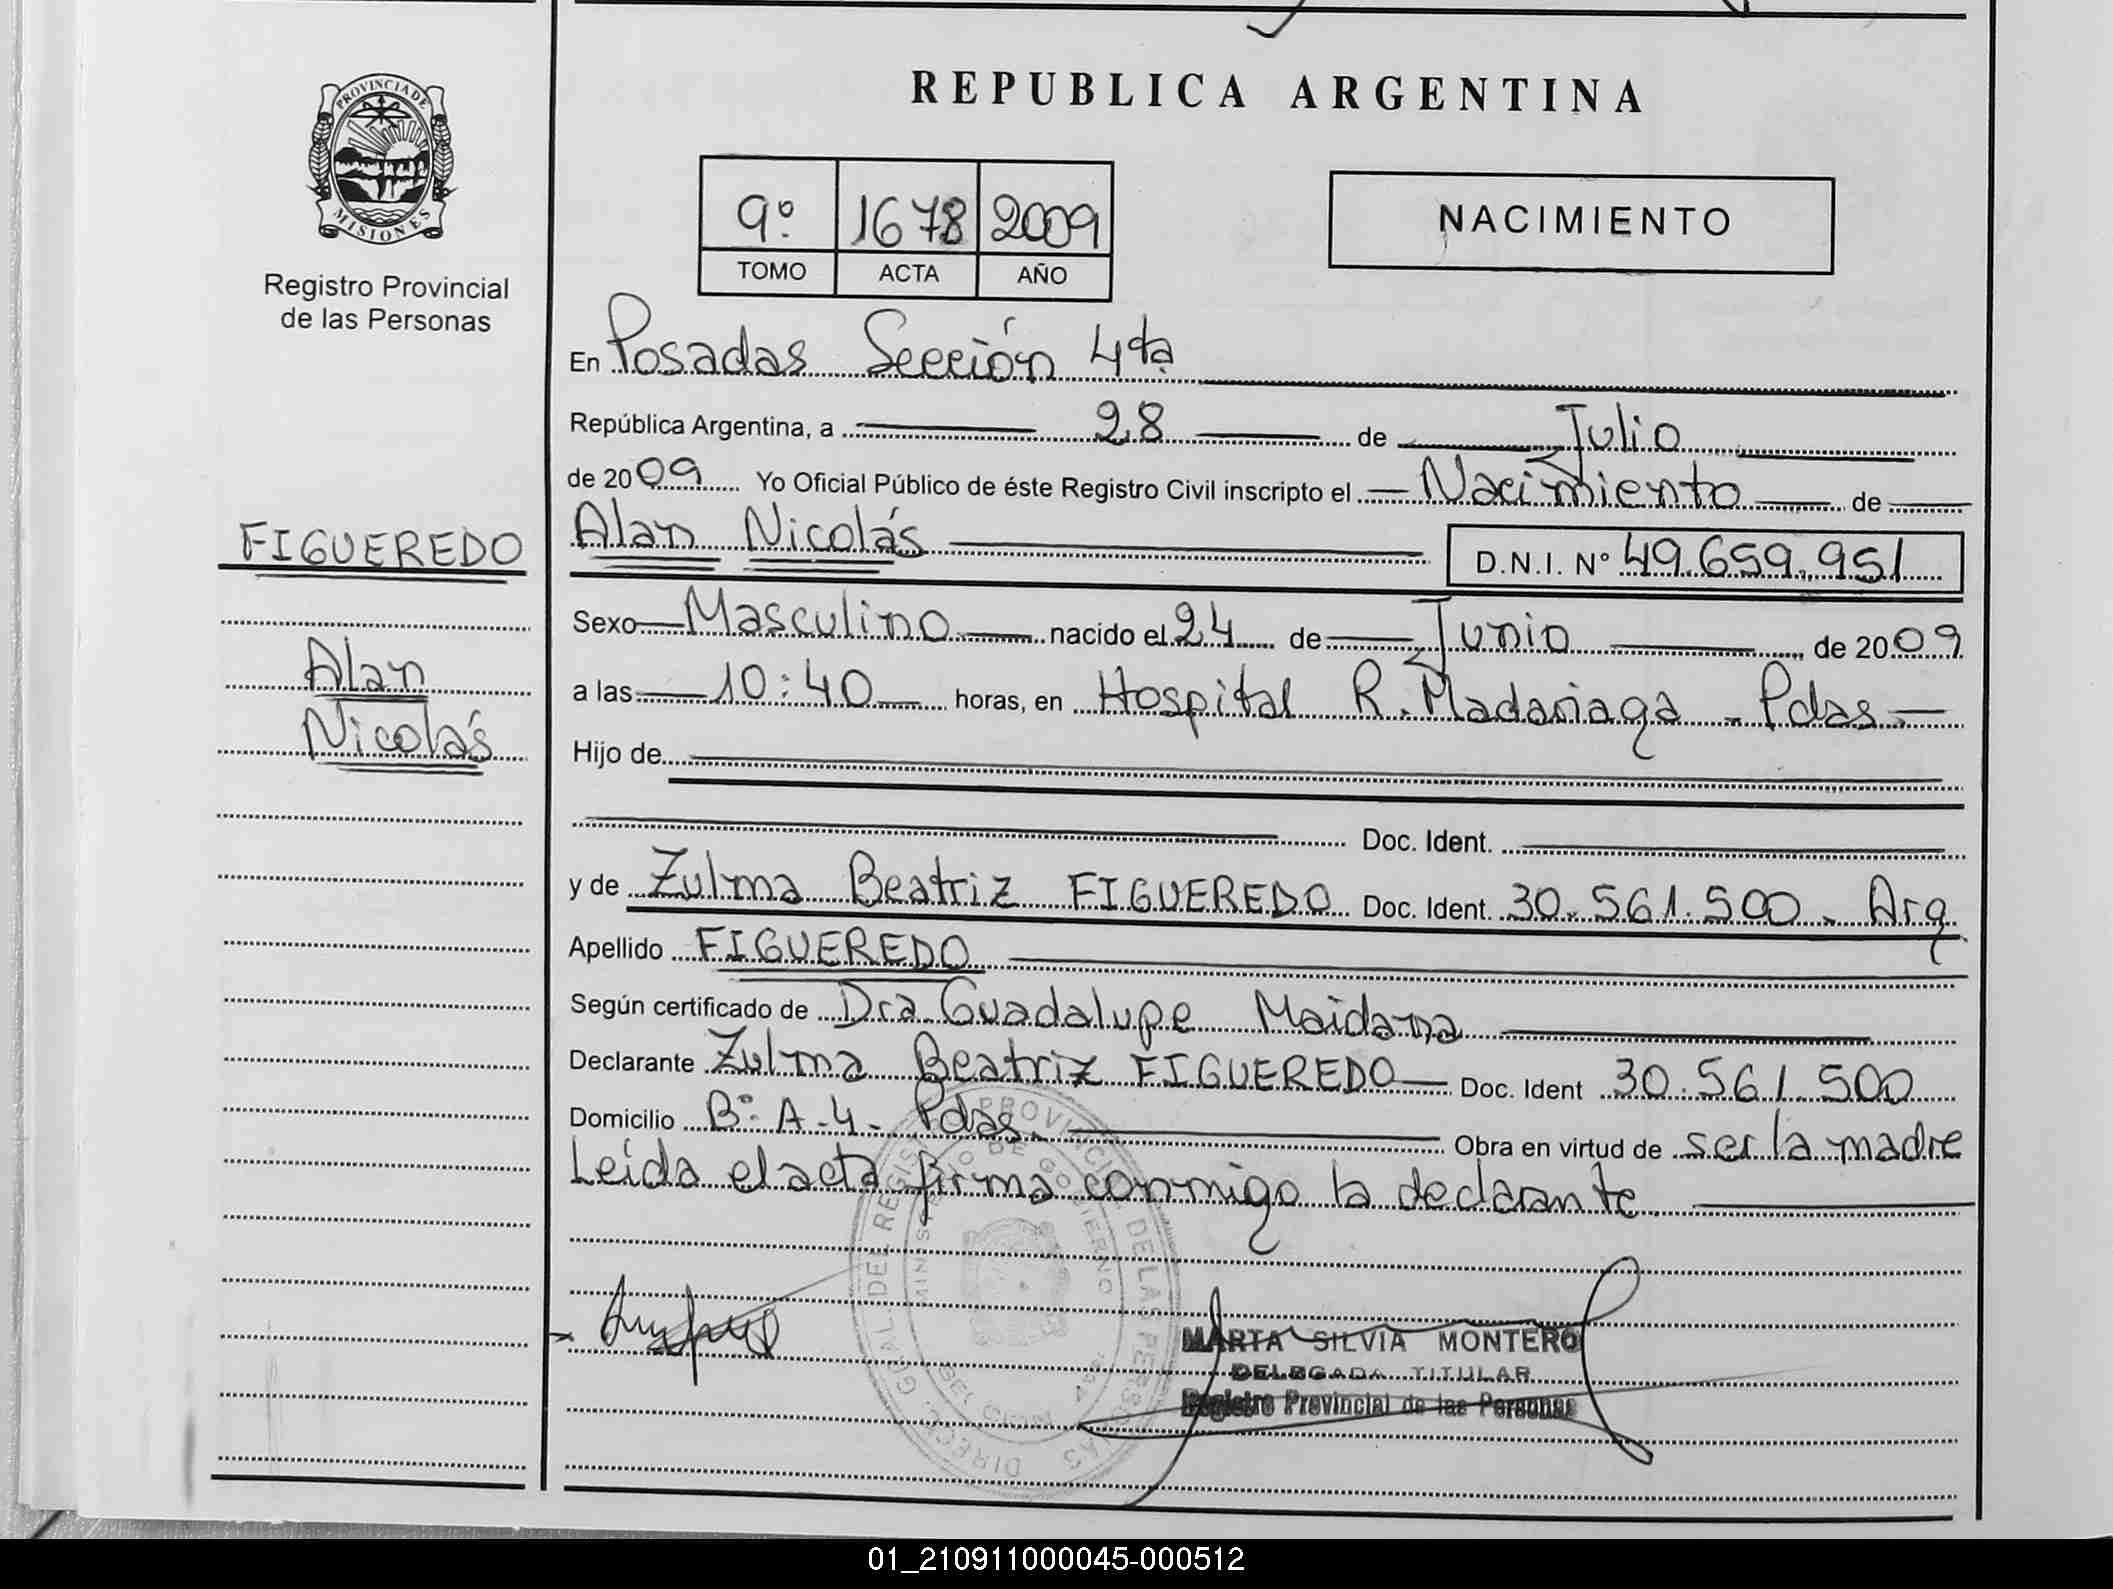 REPUBLICA ARGENTINA
PROVINCIA DE
MISIONES
Registro Provincial
de las Personas
9º 1678 2009
TOMO ACTA AÑO
NACIMIENTO
En Posadas Sección 4ta
República Argentina, a 28 de Julio
de 2009 Yo Oficial Público de éste Registro Civil inscripto el Nacimiento de
FIGUEREDO
Alan
Nicolás
Alan Nicolás D.N.I. Nº 49.659.951
Sexo Masculino nacido el 24 de Junio de 2009
a las 10:40 horas, en Hospital R. Madariaga - Pdas.-
Hijo de
Doc. Ident.
y de Zulma Beatriz FIGUEREDO Doc. Ident. 30.561.500 - Arg
Apellido FIGUEREDO
Según certificado de Dra Guadalupe Maidana
Declarante Zulma Beatriz FIGUEREDO Doc. Ident 30.561.500
Domicilio Bº A-4- Pdas. Obra en virtud de ser la madre
Leída el acta firma conmigo la declarante
MARTA SILVIA MONTERO
DELEGADA TITULAR
Registro Provincial de las Personas
01_210911000045-000512